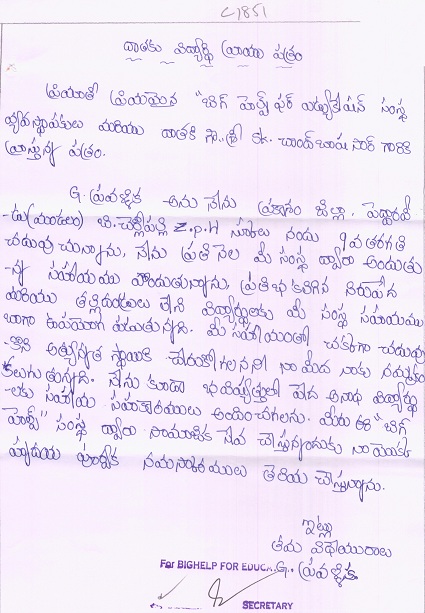 C1851
దాతకు విద్యార్థి వ్రాయు పత్రం
ప్రియాతి ప్రియమైన "బిగ్ హెల్ప్ ఫర్ ఎడ్యుకేషన్ సంస్థ
వ్యవస్థాపకులు మరియు దాతకి గౌ..శ్రీ SK. చాంద్ బాషా సార్ గారికి
వ్రాస్తున్న పత్రం.
G. ప్రవళ్ళిక అను నేను ప్రకాశం జిల్లా, పెద్దారవీ
-డు(మండలం) బి.చెర్లోపల్లి Z.P.H స్కూలు నందు 9వ తరగతి
చదువు చున్నాను, నేను ప్రతి నెల మీ సంస్థ ద్వారా అందుతు
-న్న సహాయము పొందుతున్నాను, ప్రతిభ కలిగిన నిరుపేద
మరియు తల్లిదండ్రులు లేని విద్యార్థులకు మీ సంస్థ సహాయము
బాగా ఉపయోగ పడుతున్నది. మీ సహాయంతో చక్కగా చదువు
-కొని అత్యున్నత స్థాయికి చేరుకోగలనని నా మీద నాకు నమ్మకం
కలుగుతున్నది. నేను కూడా భవిష్యత్తులో పేద అనాధ విద్యార్థు
-లకు సహాయ సహకారములు అందించగలను. మీరు ఈ "బిగ్
హెల్ప్" సంస్థ ద్వారా సామాజిక సేవ చేస్తున్నందుకు నా యొక్క
హృదయ పూర్వక నమస్కారములు తెలియ చేస్తున్నాను.
ఇట్లు
తమ విధేయురాలు
G. ప్రవళ్ళిక
For BIGHELP FOR EDUC
SECRETARY